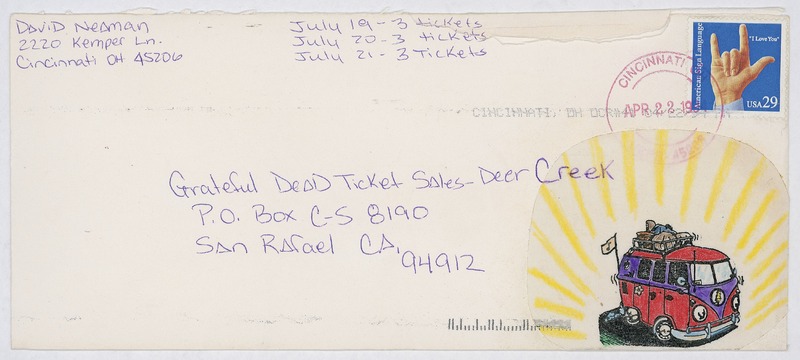 David Neaman
2220 Kemper Ln.
Cincinnati OH 45206
July 19 - 3 tickets
July 20 - 3 tickets
July 21 - 3 Tickets
American Sign Language
"I Love You"
USA 29
CINCINNATI
APR 22 19
CINCINNATI, OH
Grateful Dead Ticket Sales - Deer Creek
P.O. Box C-S 8190
San Rafael CA,
94912